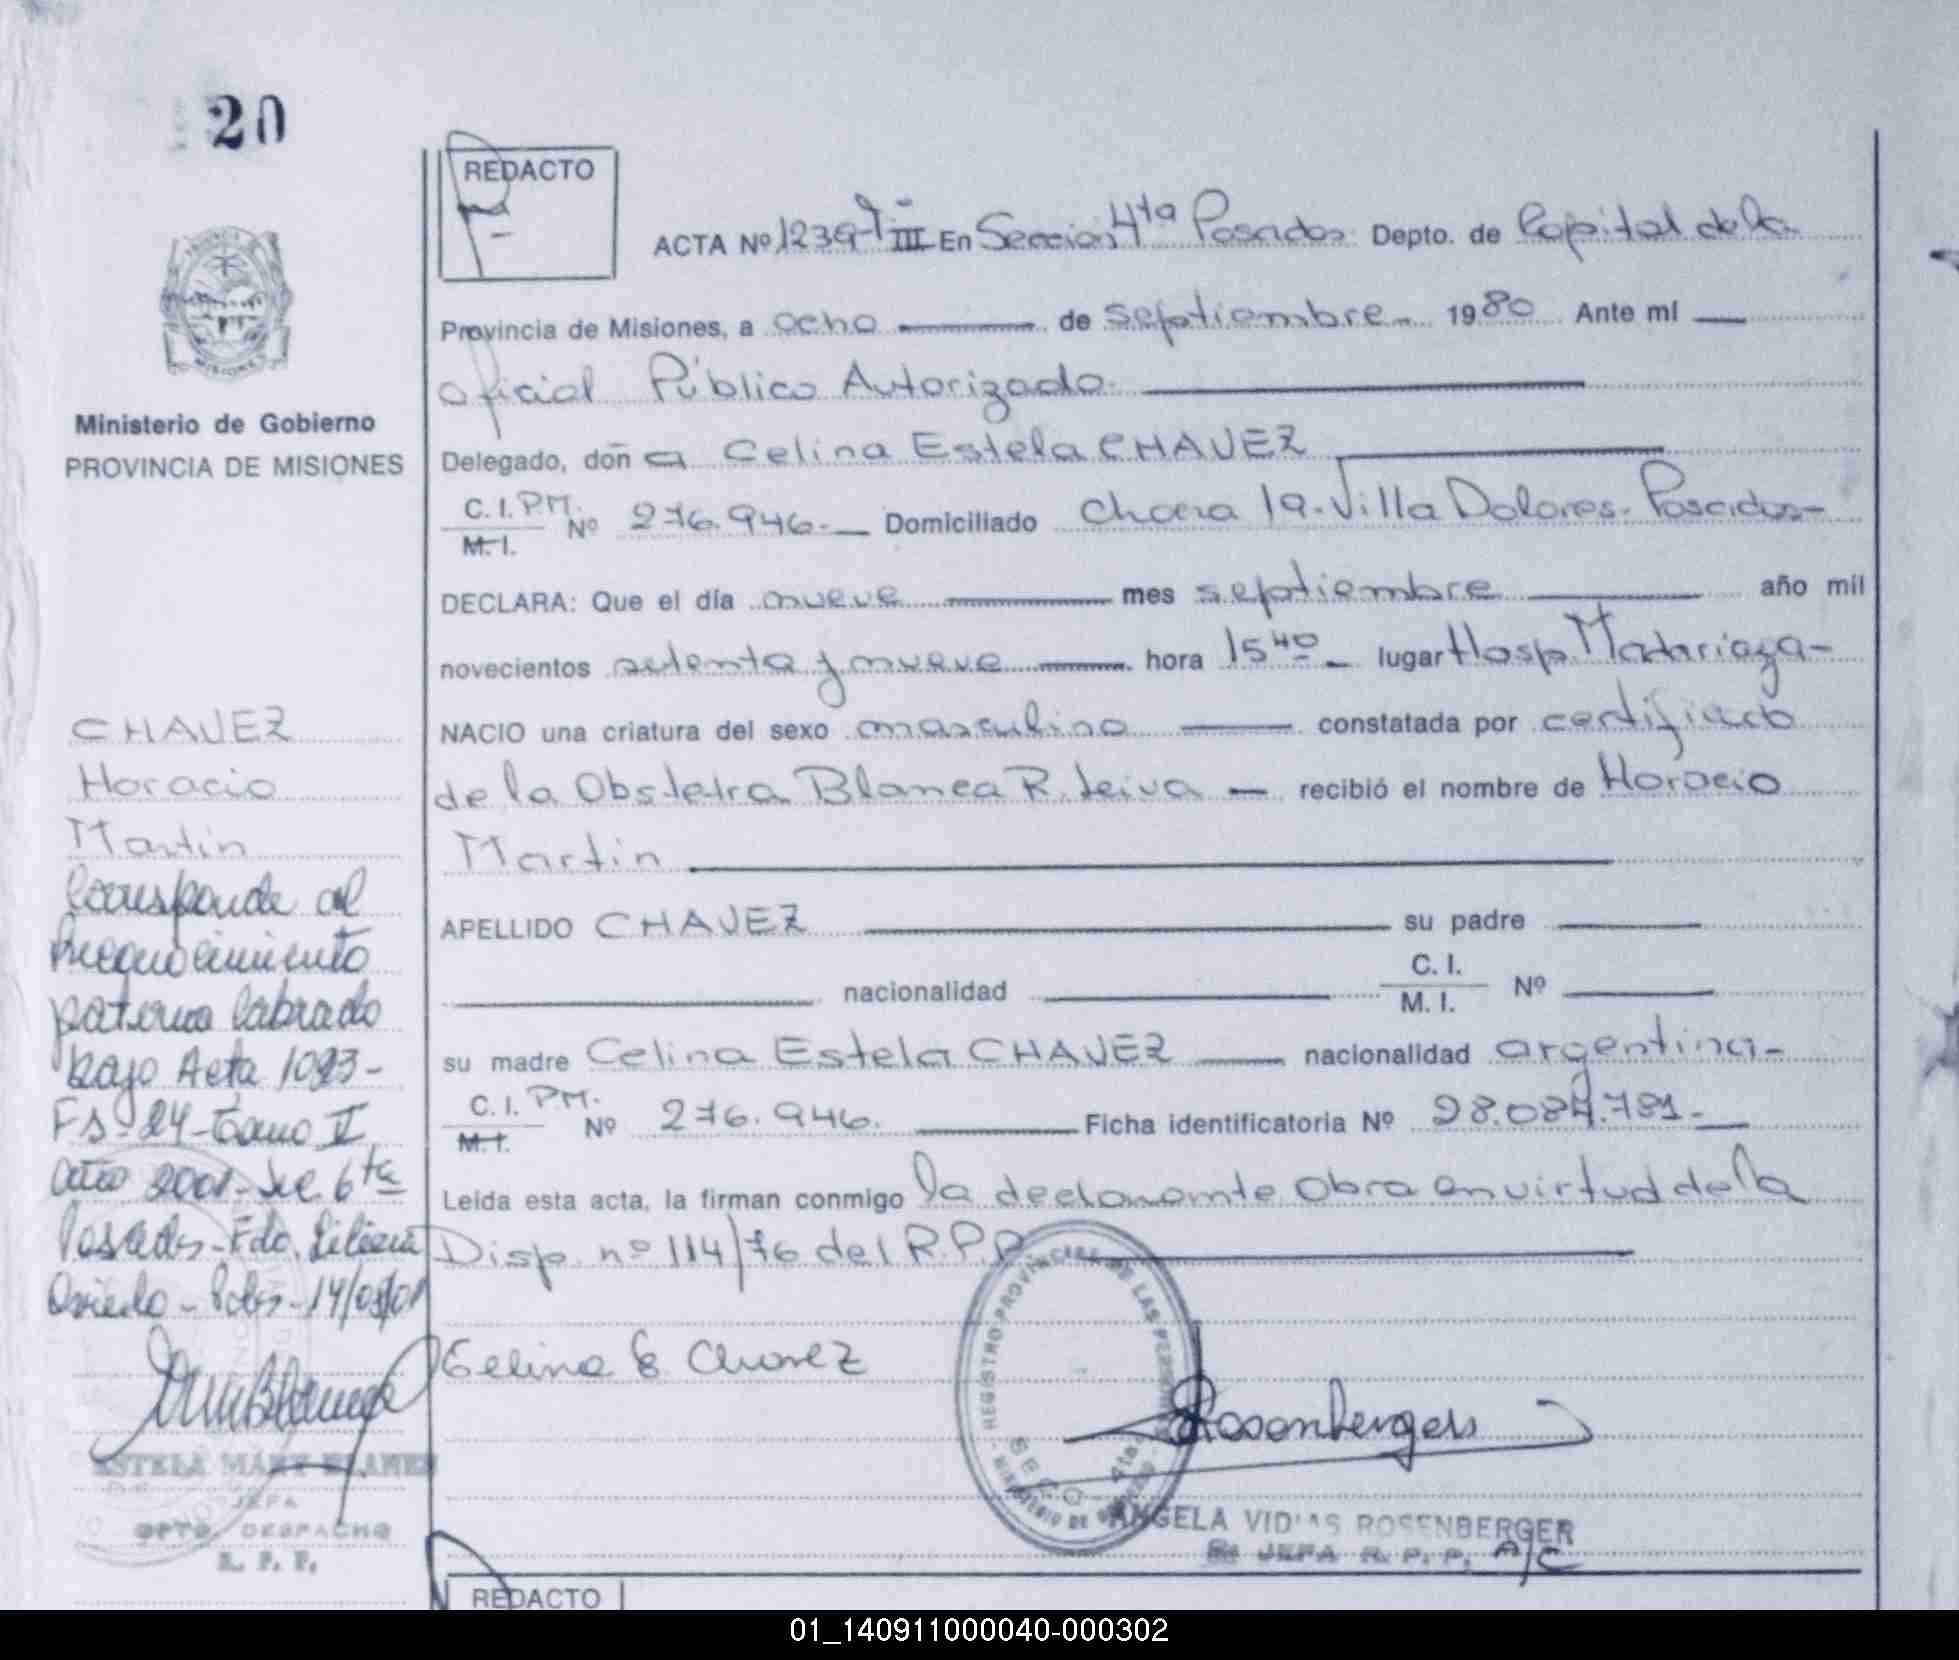 20
REDACTO
ACTA Nº 1239 T III En Sección 4ta Posadas Depto. de Capital de la
Provincia de Misiones, a ocho de septiembre 1980 Ante mí
Oficial Público Autorizado
Ministerio de Gobierno
PROVINCIA DE MISIONES
Delegado, doña Celina Estela CHAVEZ
C. I. P.M.
M. I.
Nº 276.946. Domiciliado Chacra 19. Villa Dolores. Posadas
DECLARA: Que el día nueve mes septiembre año mil
novecientos setenta y nueve hora 15 40 lugar Hosp. Madariaga
NACIO una criatura del sexo masculino constatada por certificado
de la Obstetra Blanca R. Leiva recibió el nombre de Horacio
Martin
APELLIDO CHAVEZ su padre
nacionalidad C. I.
M. I. Nº
su madre Celina Estela CHAVEZ nacionalidad argentina
C. I. P.M.
M. I.
Nº 276.946. Ficha identificatoria Nº 28.084.781
Leida esta acta, la firman conmigo la declarante Obra en virtud de la
Disp. nº 114/76 del R.P.P
Celina E Chavez
Rosenberger
REGISTRO PROVINCIAL DE LAS PERSONAS
MINISTERIO DE GOBIERNO
SECC. 4ta
ANGELA VIDIAS ROSENBERGER
JEFA R. P. P. A/C
CHAVEZ
Horacio
Martin
Corresponde al
Reconocimiento
paterno labrado
bajo Acta 1093-
Fs-24-Tomo II
año 2001-Sec. 6ta
Posadas-Fdo. Liliana
Oviedo-Pdas-14/09/01
ESTELA MARY BLANCO
JEFA
DPTO. DESPACHO
R. P. P.
REDACTO
01_140911000040-000302